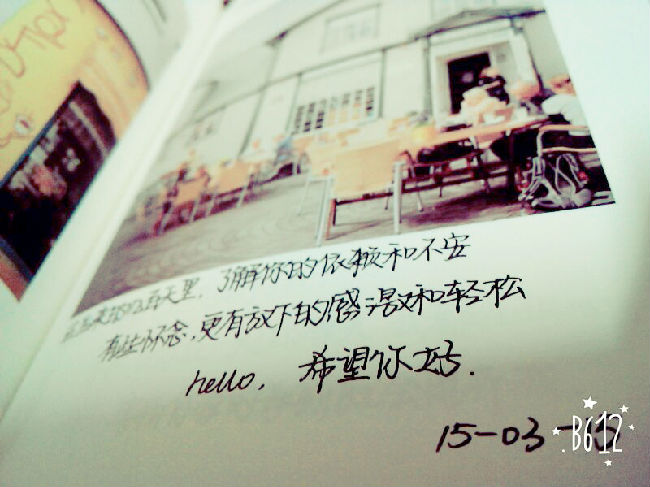 天里,了解你的依赖和不安
有些怀念,更有放下的感激和轻松
hello, 希望你好.
15-03-
B612